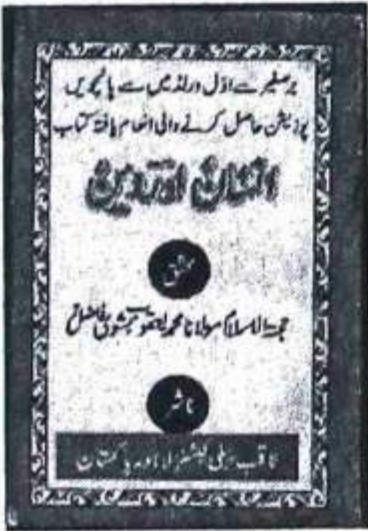 برصغیر سے اول ورلڈ میں سے پانچویں
پوزیشن حاصل کرنے والی انعام یافتہ کتاب
انسان اور دین
محقق
حجۃ الاسلام مولانا محمد یعقوب بشوی فاضل قم
ناشر
ثاقب پبلی کیشنز لاہور پاکستان